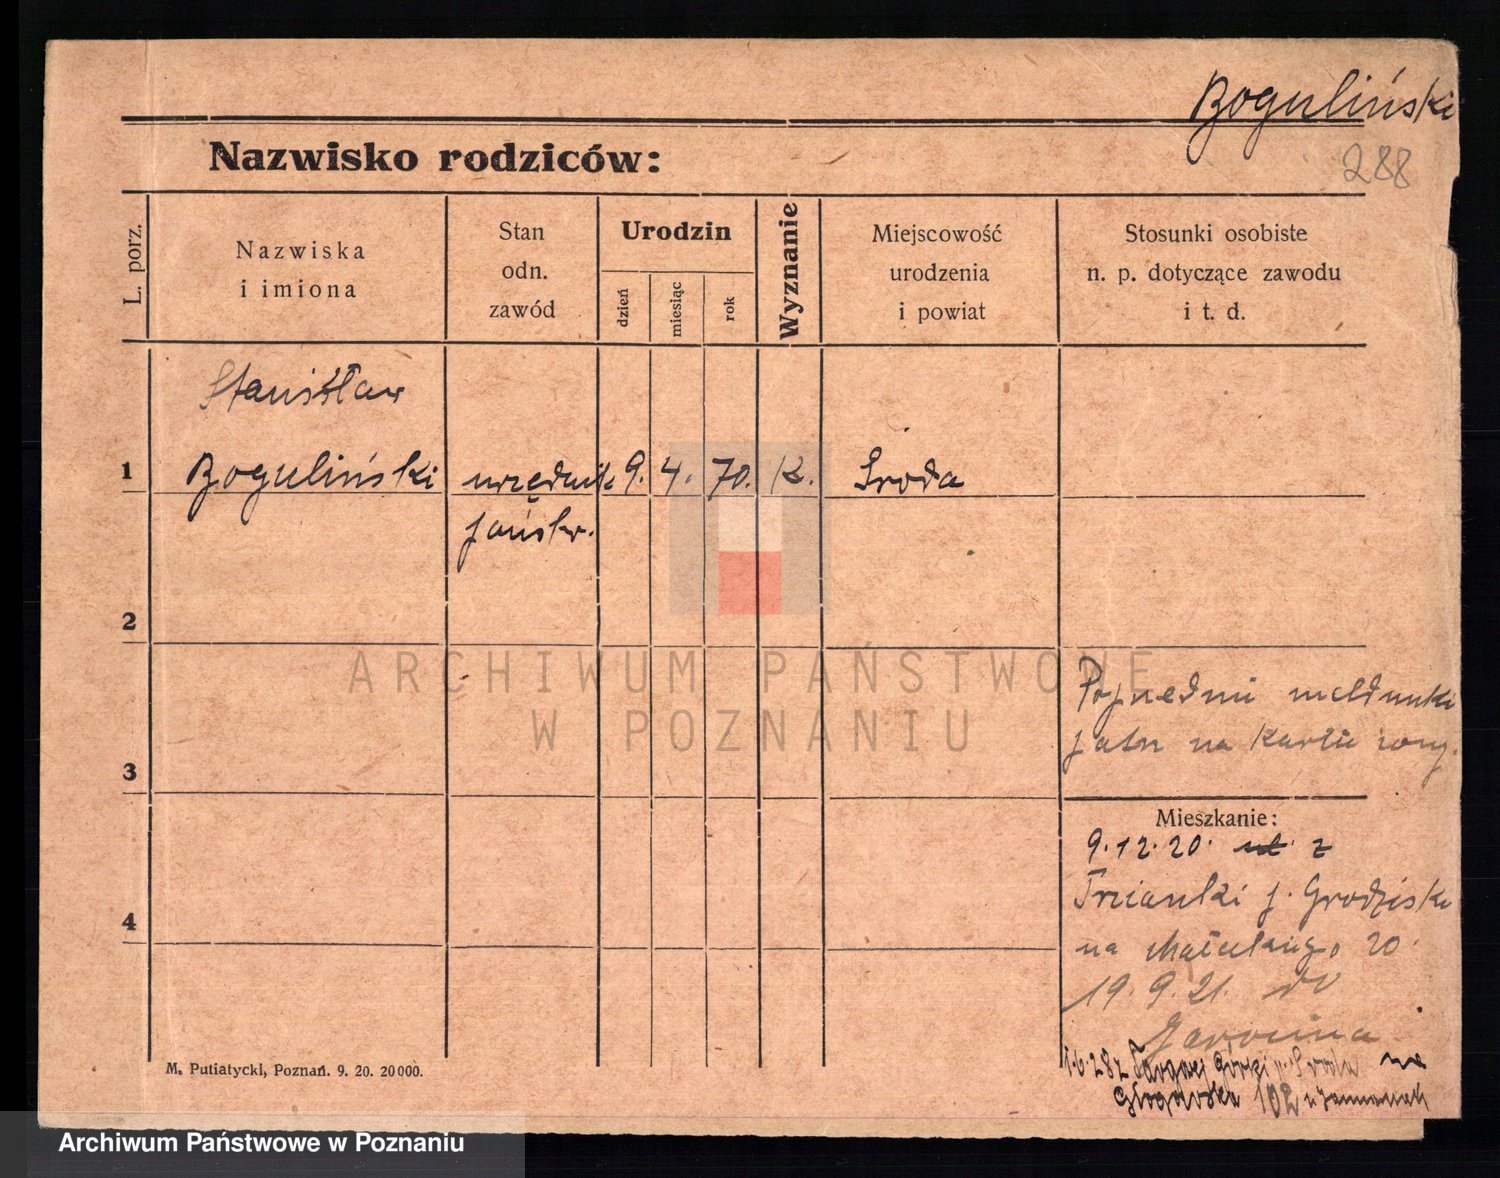 Boguliński
288
Nazwisko rodziców:
L. porz.
Nazwiska
i imiona
Stan
odn.
zawód
Urodzin
dzień
miesiąc
rok
Wyznanie
Miejscowość
urodzenia
i powiat
Stosunki osobiste
n. p. dotyczące zawodu
i t. d.
Stanisław
1 Boguliński urzędnik 9. 4. 70. K. Środa
państw.
2
ARCHIWUM PAŃSTWOWE
W POZNANIU
Poprzedni meldunki
patrz na karcie
3
Mieszkanie:
9.12.20. z
Trzcianki p. Grodzisk
4
na 20.
19.9.21. do
Jarocina
1.6.28 z Targowej Górki p. Środa na
Głogowska 102
M. Putiatycki, Poznań. 9. 20. 20000.
Archiwum Państwowe w Poznaniu